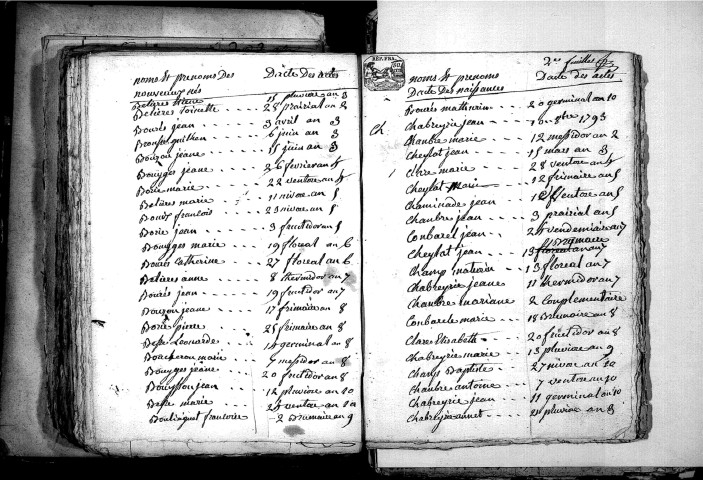 noms et prenoms Des Dacte Des actes
nouveaux nés
Betieres 11 pluviose an 3
Betieres toinette 28 prairial an 2
Bourés jean 3 avril an 3
6 juin an 3
Bouzon jeane 15 juin an 3
Bouyges jeane 26 fevrier an 4
Borie marie 22 ventose an 5
Betieres marie 11 nivose an 5
Bourés francois 23 nivose an 5
Borie jean 3 fructidor an 5
Bouyges marie 19 floreal an 6
Bourés Catherine 27 floreal an 6
Betieres anne 8 thermidor an 7
Bourés jean 19 fructidor an 7
Bouzon jeane 17 frimaire an 8
Borie pierre 25 frimaire an 8
Besse Leonarde 14 germinal an 8
Boucheron marie 4 messidor an 8
Bouyges jeane 20 fructidor an 8
Bouysson jean 12 pluviose an 10
Besse marie 25 ventose an 10
francoise 2 Brumaire an 9
REP. FRA.
2me feuillet
noms et prenoms Dacte des actes
Dacte Des naissances
Bourés mathurin 20 germinal an 10
Ch. Chabreyrie jean 1793
Chanbre marie 12 messidor an 2
Cheylat jean 15 mars an 3
Clare marie 28 ventose an 4
Cheylat marie 12 frimaire an 5
Chaminade jean 12 ventose an 5
Chanbre jean 3 prairial an 5
Conbarel jean 25 vendemiaire an 7
Brumaire
Cheylat jean 13 floreal an 7
Champ maturin 13 floreal an 7
Chabreyrie jeane 11 thermidor an 7
Chanbre mariane 2 Complementaire
Conbarele marie 18 Brumaire an 8
Clare Elisabeth 20 fructidor an 8
Chabreyrie marie 13 pluviose an 9
Champ Baptiste 27 nivose an 10
Chanbre antoine 7 ventose an 10
Chabreyrie jean 11 germinal an 10
Chabreyrie annet pluviose an 8